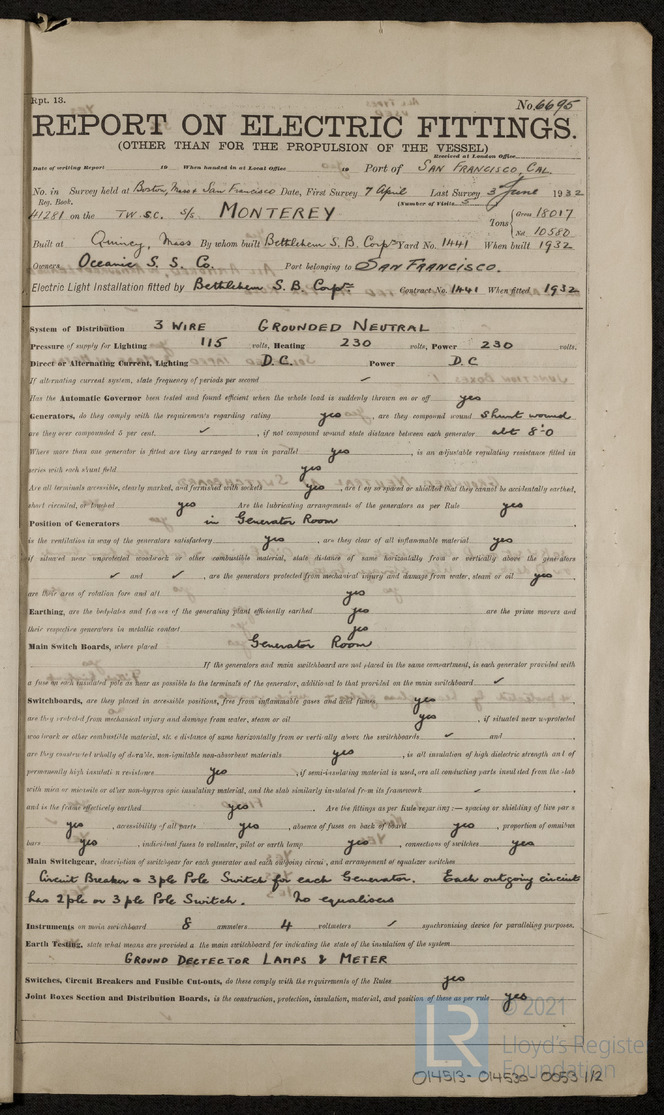 Rpt. 13.
No. 6695
REPORT ON ELECTRIC FITTINGS.
(OTHER THAN FOR THE PROPULSION OF THE VESSEL)
Received at London Office
Date of writing Report 19 When handed in at Local Office 19 Port of SAN FRANCISCO, CAL.
No. in Survey held at Boston, Mass & San Francisco Date, First Survey 7 April Last Survey 3 June 1932
Reg. Book. (Number of Visits 5)
41281 on the TW. SC. S/S MONTEREY Tons { Gross 18017
Net 10580
Built at Quincy, Mass By whom built Bethlehem S. B. Corpn Yard No. 1441 When built 1932
Owners Oceanic S. S. Co. Port belonging to SAN FRANCISCO.
Electric Light Installation fitted by Bethlehem S. B. Corpn Contract No. 1441 When fitted 1932
System of Distribution 3 WIRE GROUNDED NEUTRAL
Pressure of supply for Lighting 115 volts, Heating 230 volts, Power 230 volts,
Direct or Alternating Current, Lighting D.C. Power D.C
If alternating current system, state frequency of periods per second ✓
Has the Automatic Governor been tested and found efficient when the whole load is suddenly thrown on or off yes
Generators, do they comply with the requirements regarding rating yes, are they compound wound Shunt wound
are they over compounded 5 per cent. ✓, if not compound wound state distance between each generator abt 8'-0
Where more than one generator is fitted are they arranged to run in parallel yes, is an adjustable regulating resistance fitted in
series with each shunt field yes
Are all terminals accessible, clearly marked, and furnished with sockets yes, are they so spaced or shielded that they cannot be accidentally earthed,
short circuited, or touched yes Are the lubricating arrangements of the generators as per Rule yes
Position of Generators in Generator Room
is the ventilation in way of the generators satisfactory yes, are they clear of all inflammable material yes
if situated near unprotected woodwork or other combustible material, state distance of same horizontally from or vertically above the generators
✓ and ✓, are the generators protected from mechanical injury and damage from water, steam or oil yes,
are their axes of rotation fore and aft yes
Earthing, are the bedplates and frames of the generating plant efficiently earthed yes are the prime movers and
their respective generators in metallic contact yes
Main Switch Boards, where placed Generator Room
If the generators and main switchboard are not placed in the same compartment, is each generator provided with
a fuse on each insulated pole as near as possible to the terminals of the generator, additional to that provided on the main switchboard ✓
Switchboards, are they placed in accessible positions, free from inflammable gases and acid fumes yes,
are they protected from mechanical injury and damage from water, steam or oil yes, if situated near unprotected
woodwork or other combustible material, state distance of same horizontally from or vertically above the switchboards ✓ and
are they constructed wholly of durable, non-ignitable non-absorbent materials yes, is all insulation of high dielectric strength and of
permanently high insulation resistance yes, if semi-insulating material is used, are all conducting parts insulated from the slab
with mica or micanite or other non-hygroscopic insulating material, and the slab similarly insulated from its framework ✓,
and is the frame effectively earthed yes. Are the fittings as per Rule regarding:— spacing or shielding of live parts
yes, accessibility of all parts yes, absence of fuses on back of board yes, proportion of omnibus
bars yes, individual fuses to voltmeter, pilot or earth lamp yes, connections of switches yes
Main Switchgear, description of switchgear for each generator and each outgoing circuit, and arrangement of equalizer switches
Circuit Breaker & 3 ple Pole Switch for each Generator. Each outgoing circuit
has 2 ple or 3 ple Pole Switch. No equalisers
Instruments on main switchboard 8 ammeters 4 voltmeters ✓ synchronising device for paralleling purposes.
Earth Testing, state what means are provided at the main switchboard for indicating the state of the insulation of the system
GROUND DECTECTOR LAMPS & METER
Switches, Circuit Breakers and Fusible Cut-outs, do these comply with the requirements of the Rules yes
Joint Boxes Section and Distribution Boards, is the construction, protection, insulation, material, and position of these as per rule yes
© 2021
LR Lloyd's Register
Foundation
014513-014530-0053 1/2